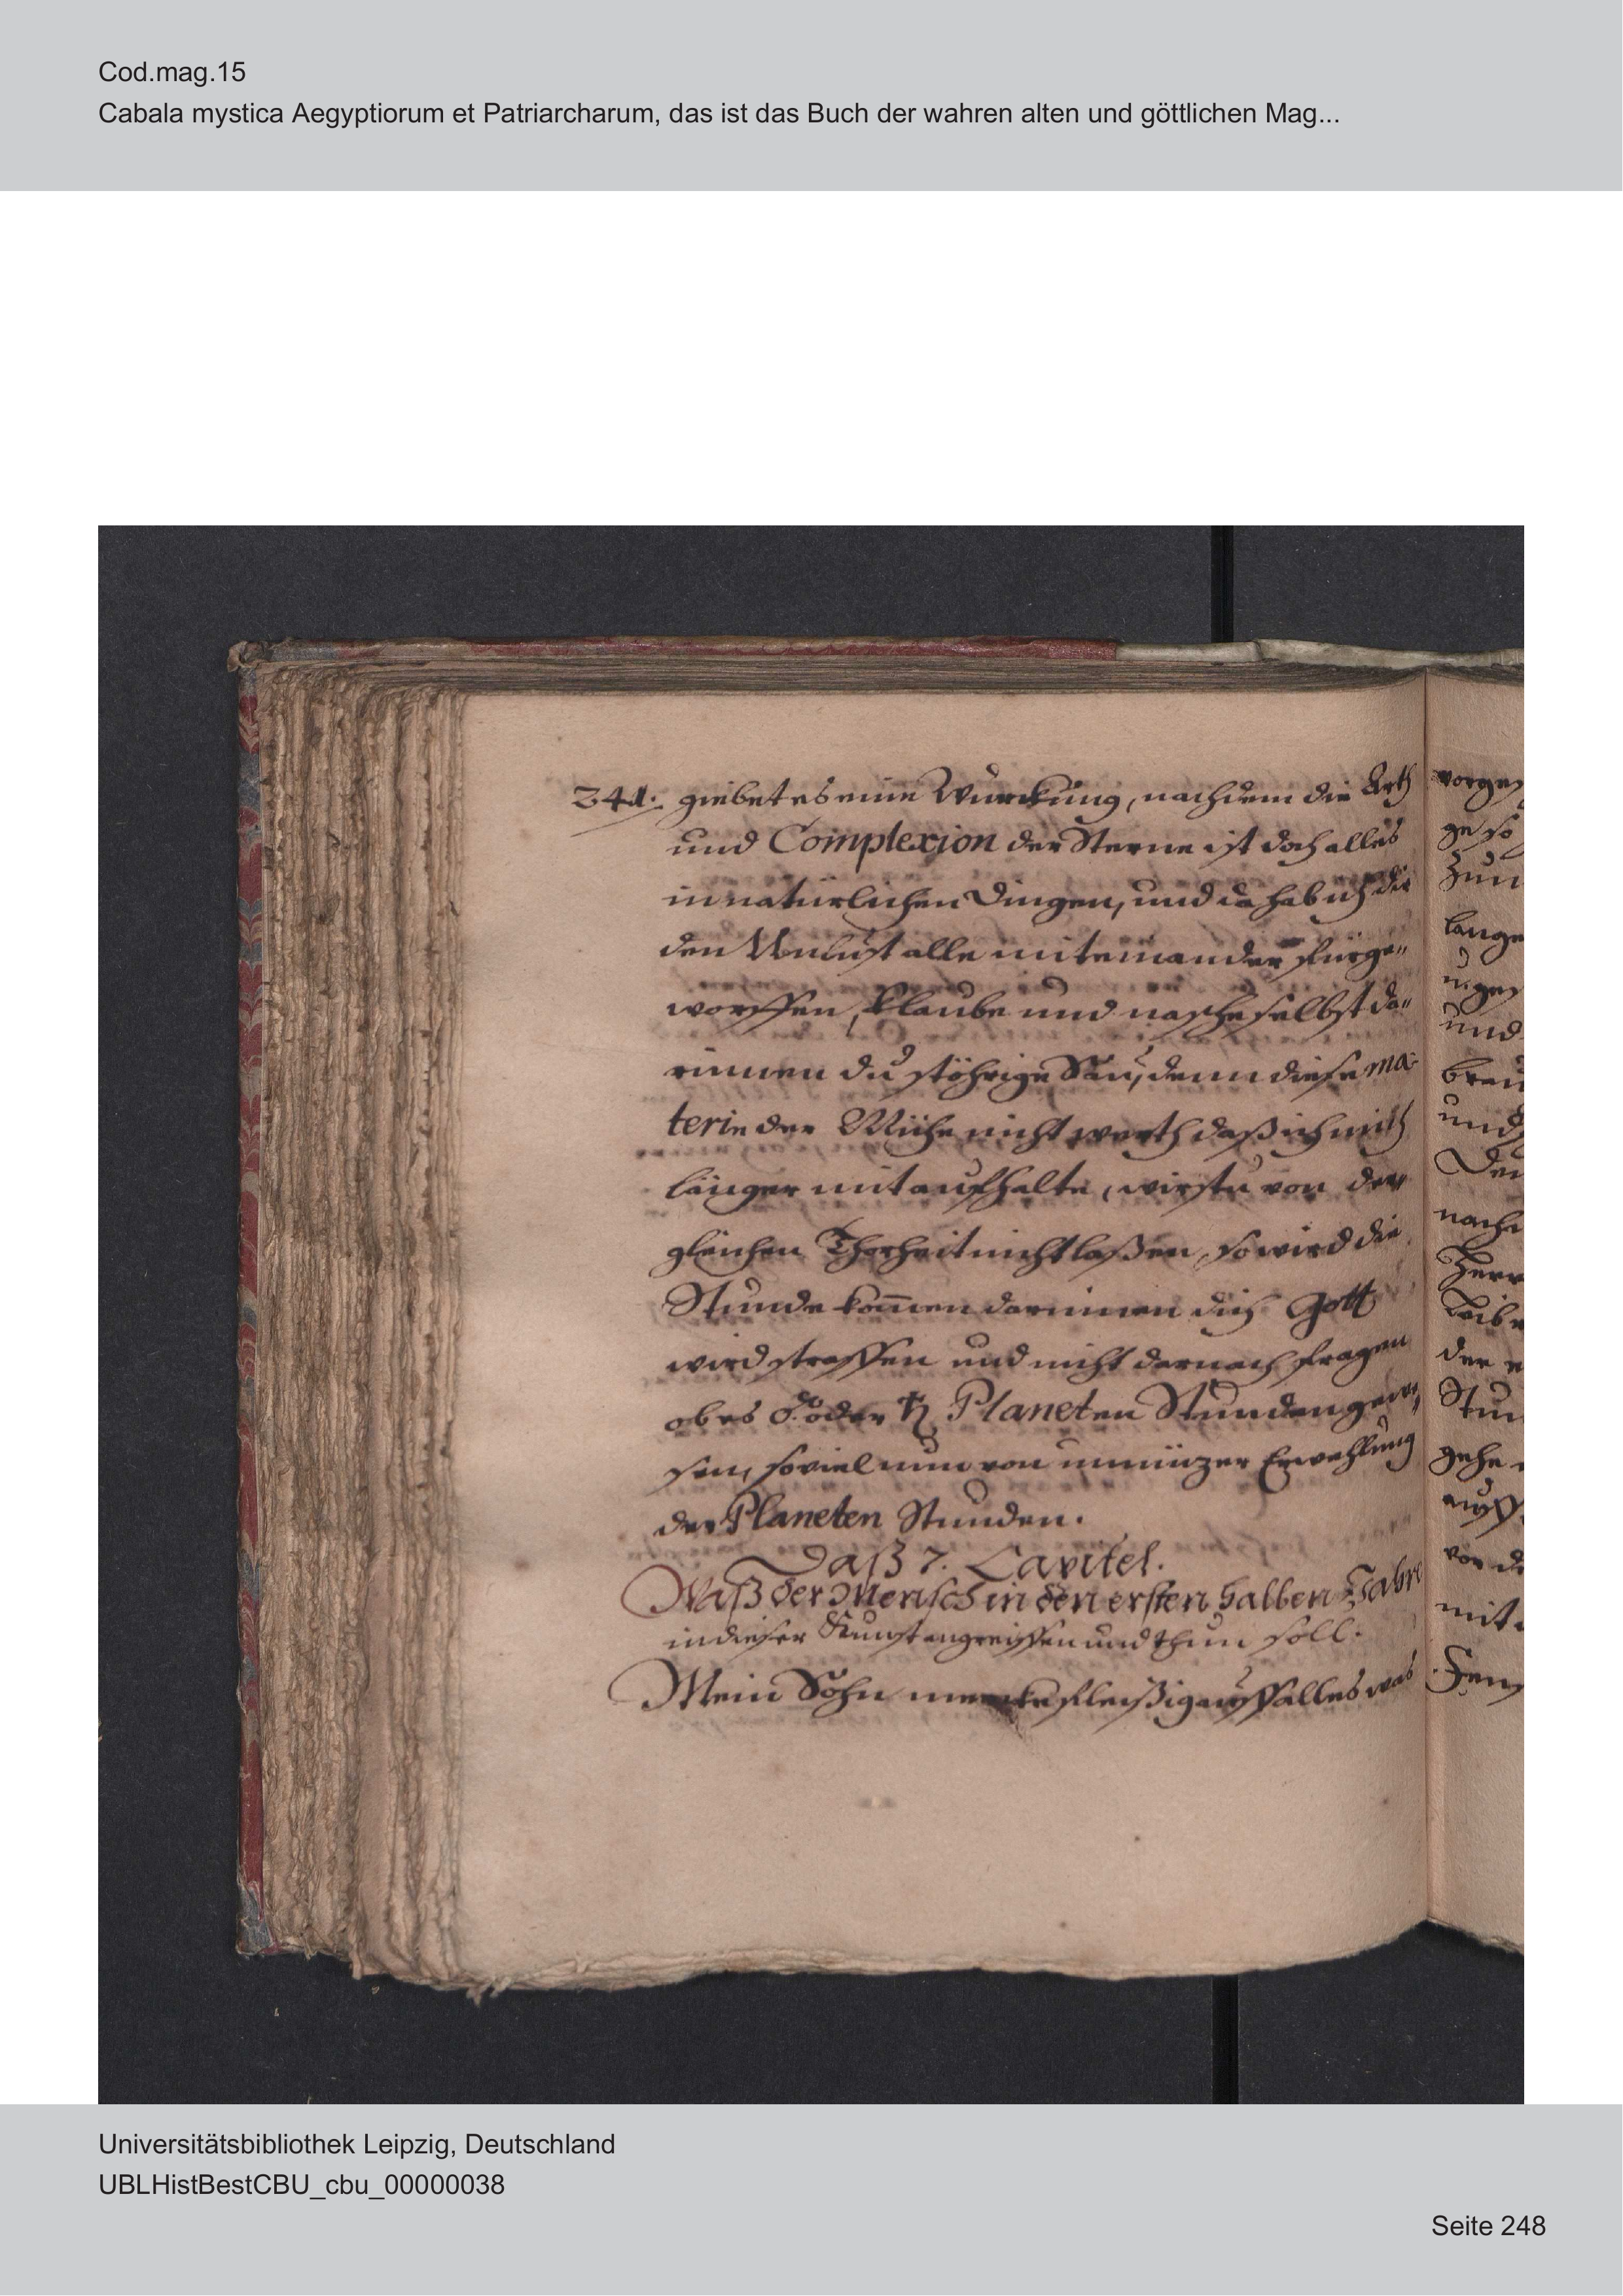 Cod.mag.15
Cabala mystica Aegyptiorum et Patriarcharum, das ist das Buch der wahren alten und göttlichen Mag...
241. giebet es eine Wurckung, nachdem die Arth
und Complexion der Sterne ist doch alles
in natürlichen Dingen, und da hab ich dir
den Unlust alle miteinander fürge„
worffen, klaube und nasche selbst da„
rinnen du stöhrige Sau, denn diese ma-
terie der Mühe nicht werth daß ich mich
länger mit auffhalte, wirstu von der„
gleichen Thorheit nicht laßen, so wird die
Stunde kom̄en darinnen dich Gott
wird straffen und nicht darnach fragen
ob es oder ♄ Planeten Stunden gewe„
sen, soviel nun von unnüzer Erwehlung
der Planeten Stunden.
Daß 7. Capitel.
Waß der Mensch in den ersten halben Jahre
in dieser Kunst angreiffen und thun soll.
Mein Sohn mercke fleißig auff alles was
ge so
Zum
lange
und
brau
und
Den
nach
Herr
Leibe
der
Stun
gehe
auff
von
mit
Universitätsbibliothek Leipzig, Deutschland
UBLHistBestCBU_cbu_00000038
Seite 248